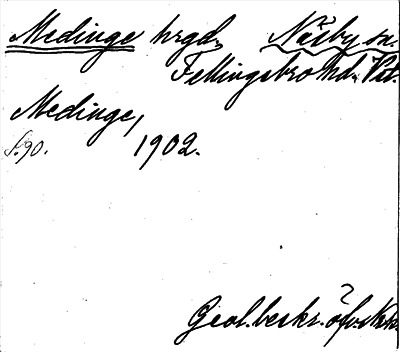 Medinge hrgd, Näsby sn.
Fellingsbro hd. Vstl.
Medinge,
s. 90. 1902.
Geol. beskr. öfv.